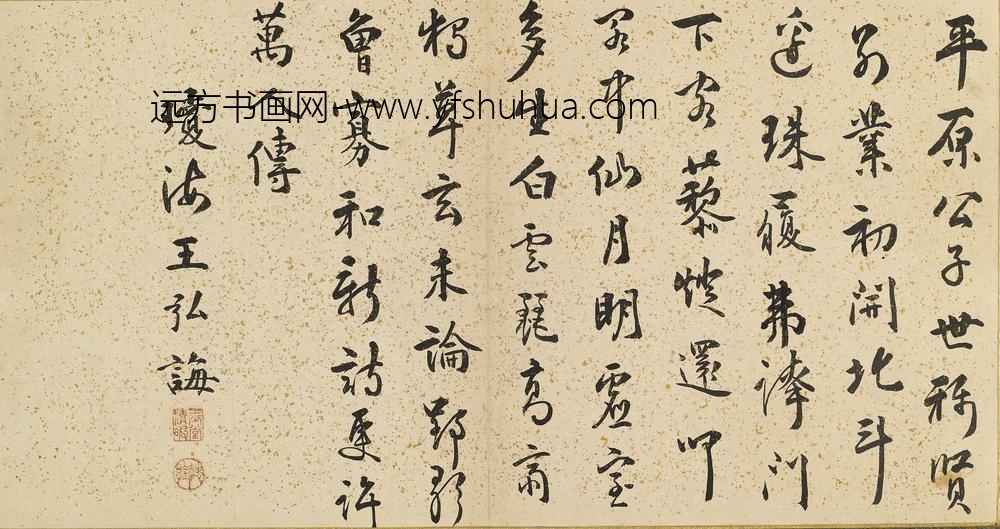 平原公子世稱賢
別業初開北斗
邊珠履弗譁門
下客藜還叩
閣中仙月明虛室
多生白雲高齋
獨草玄未論郢
曾寡和新詩更許
萬傳
瓊海王弘誨
远方书画网 www.yfshuhua.com